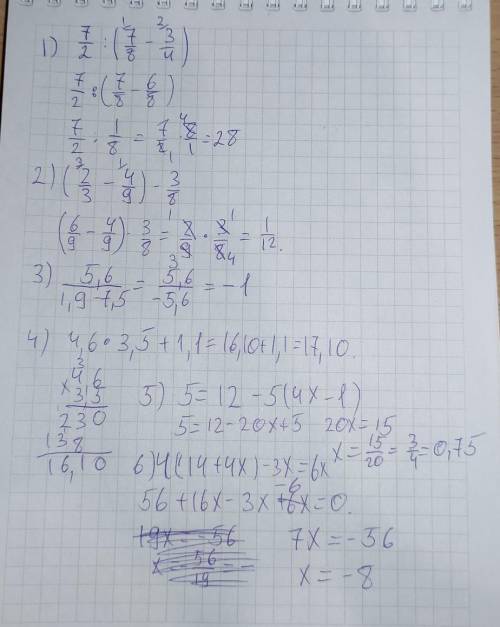 1) 7/2 : (7/8 - 3/4)
7/2 : (7/8 - 6/8)
7/2 : 1/8 = 7/2 · 8/1 = 28
2) (2/3 - 4/9) - 3/8
(6/9 - 4/9) · 3/8 = 2/9 · 3/8 = 1/12.
3) 5,6/(1,9-7,5) = 5,6/-5,6 = -1
4) 4,6 · 3,5 + 1,1 = 16,10 + 1,1 = 17,10.
46
x 3,5
230
138
16,10
5) 5 = 12 - 5(4x - 1)
5 = 12 - 20x + 5 20x = 15
x = 15/20 = 3/4 = 0,75
6) 4(14 + 4x) - 3x = 6x
56 + 16x - 3x - 6x = 0.
19x = -56
7x = -56
x = -8